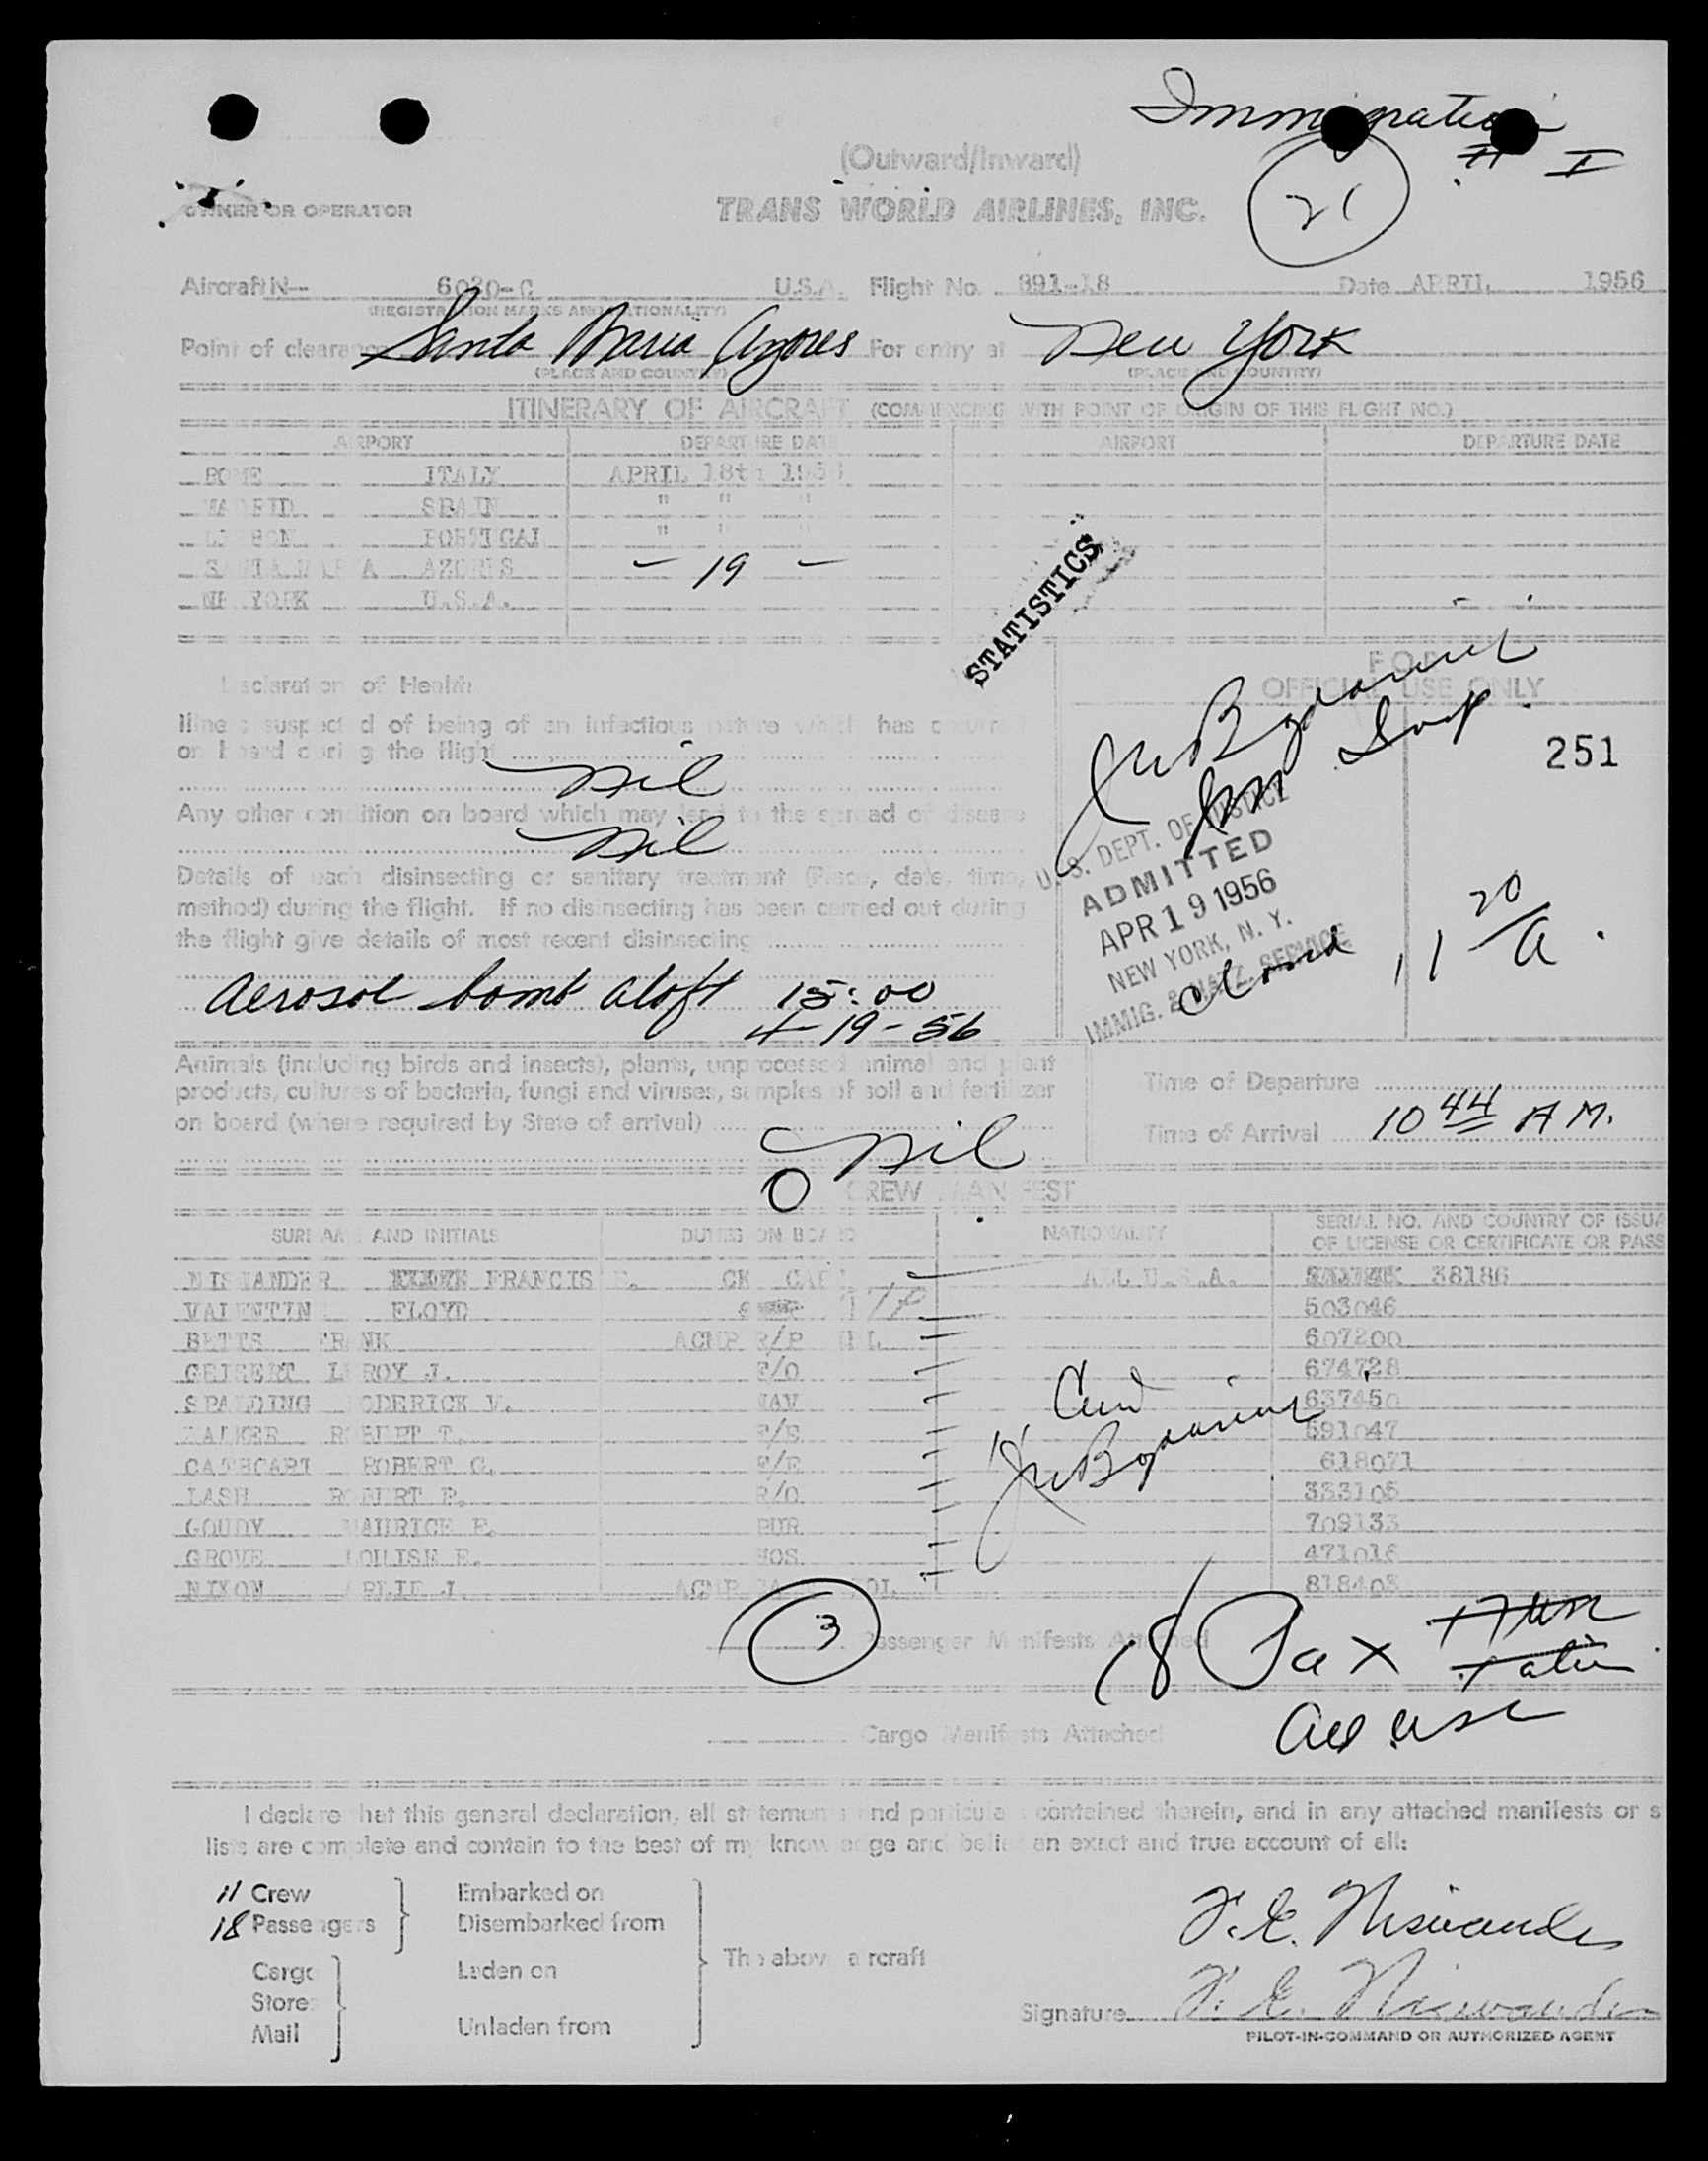 Immigration
(Outward/Inward)
21
OWNER OR OPERATOR TRANS WORLD AIRLINES, INC.
Aircraft N- 6020-C U.S.A. Flight No. 891-18 Date APRIL 1956
(REGISTRATION MARKS AND NATIONALITY)
Point of clearance Santa Maria Azores For entry at New York
(PLACE AND COUNTRY) (PLACE AND COUNTRY)
ITINERARY OF AIRCRAFT (COMMENCING WITH POINT OF ORIGIN OF THIS FLIGHT NO.)
AIRPORT DEPARTURE DATE AIRPORT DEPARTURE DATE
ROME ITALY APRIL 18th 1956
MADRID SPAIN " " "
LISBON PORTUGAL " " "
SANTA MARIA AZORES - 19 -
NEW YORK U.S.A.
STATISTICS
Declaration of Health
FOR
OFFICIAL USE ONLY
Illness suspected of being of an infectious nature which has occurred
on board during the flight
nil
251
Any other condition on board which may lead to the spread of disease
nil
Details of each disinsecting or sanitary treatment (Place, date, time,
method) during the flight. If no disinsecting has been carried out during
the flight give details of most recent disinsecting
Aerosol bomb aloft 15:00
4-19-56
Imm Insp.
U. S. DEPT. OF JUSTICE
ADMITTED
APR 19 1956
NEW YORK, N. Y.
IMMIG. & NATZ. SERVICE
11 20/A.
Animals (including birds and insects), plants, unprocessed animal and plant
products, cultures of bacteria, fungi and viruses, samples of soil and fertilizer
on board (where required by State of arrival)
nil
Time of Departure
Time of Arrival 10 44 A M.
CREW MANIFEST
SURNAME AND INITIALS DUTIES ON BOARD NATIONALITY SERIAL NO. AND COUNTRY OF ISSUA
OF LICENSE OR CERTIFICATE OR PASS
NISWANDER FRANCIS E. CK CAPT ALL U.S.A. 38186
VALENTINE FLOYD 503046
BETTS FRANK ACMR R/P 607200
GEISERT LEROY J. F/O 674728
SPALDING RODERICK V. NAV 637450
ROBERT T. F/E 591047
CATHCART ROBERT G. F/E 618071
LASH ROBERT P. R/O 333105
GOUDY MAURICE E. PUR 709133
GROVE LOUISE E. HOS. 471016
NIXON ARLIE J. ACMR 818403
3 Passenger Manifests Attached
18 Pax
all usc
Cargo Manifests Attached
I declare that this general declaration, all statements and particulars contained therein, and in any attached manifests or s
lists are complete and contain to the best of my knowledge and belief an exact and true account of all:
11 Crew Embarked on
18 Passengers Disembarked from
The above aircraft
Cargo Laden on
Stores
Mail Unladen from
F. E. Niswander
Signature F. E. Niswander
PILOT-IN-COMMAND OR AUTHORIZED AGENT